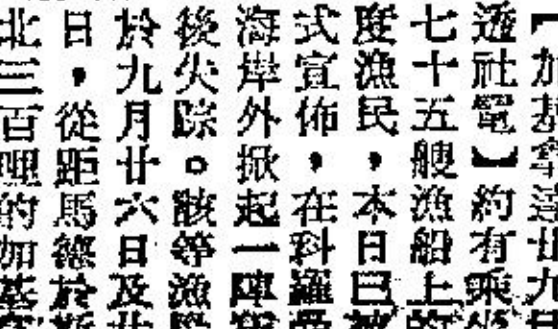 【加基拿達廿九日
透社電】約有乘
七十五艘漁船上的
度漁民，本日已被
式宣佈，在科羅曼
海岸外掀起一陣
後失踪。骸等漁船
於九月廿六日及廿
日，從距馬德於斯
北三百哩的加基拿